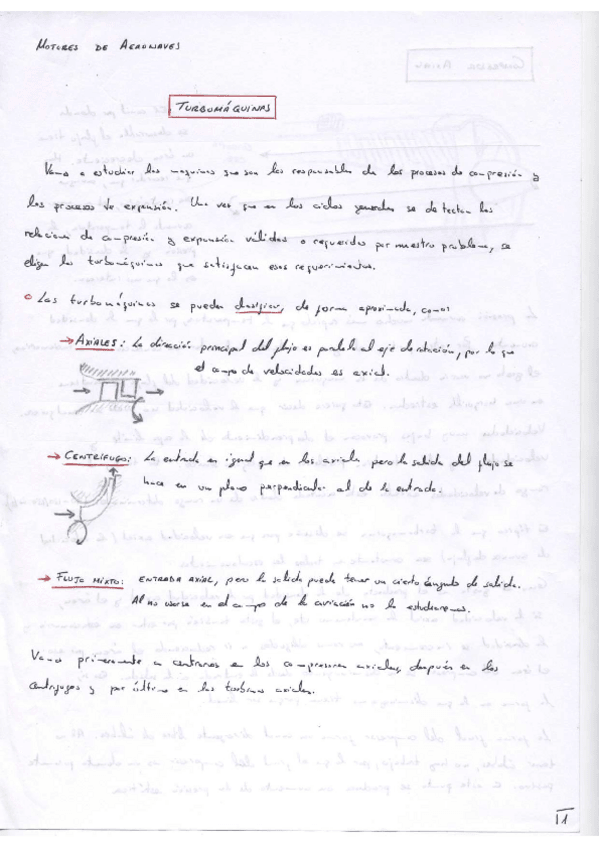 MOTORES DE AERONAVES
TURBOMÁQUINAS
Vamos a estudiar las maquinas que son las responsables de los procesos de compresión y
los procesos de expansión. Una vez que en los ciclos generales se detectan las
relaciones de compresión y expansión válidas o requeridas por nuestro problema, se
eligen las turbomáquinas que satisfacen esos requerimientos.
Las turbomáquinas se pueden clasificar, de forma aproximada, como:
→ AXIALES: La dirección principal del flujo es paralela al eje de rotación, por lo que
el campo de velocidades es axial.
→ CENTRÍFUGO: La entrada es igual que en los axiales pero la salida del flujo se
hace en un plano perpendicular al de la entrada.
→ FLUJO MIXTO: ENTRADA AXIAL, pero la salida puede tener un cierto ángulo de salida.
Al no usarse en el campo de la aviación no la estudiaremos.
Vamos primeramente a centrarnos en los compresores axiales, después en los
centrífugos y por último en las turbinas axiales.
11